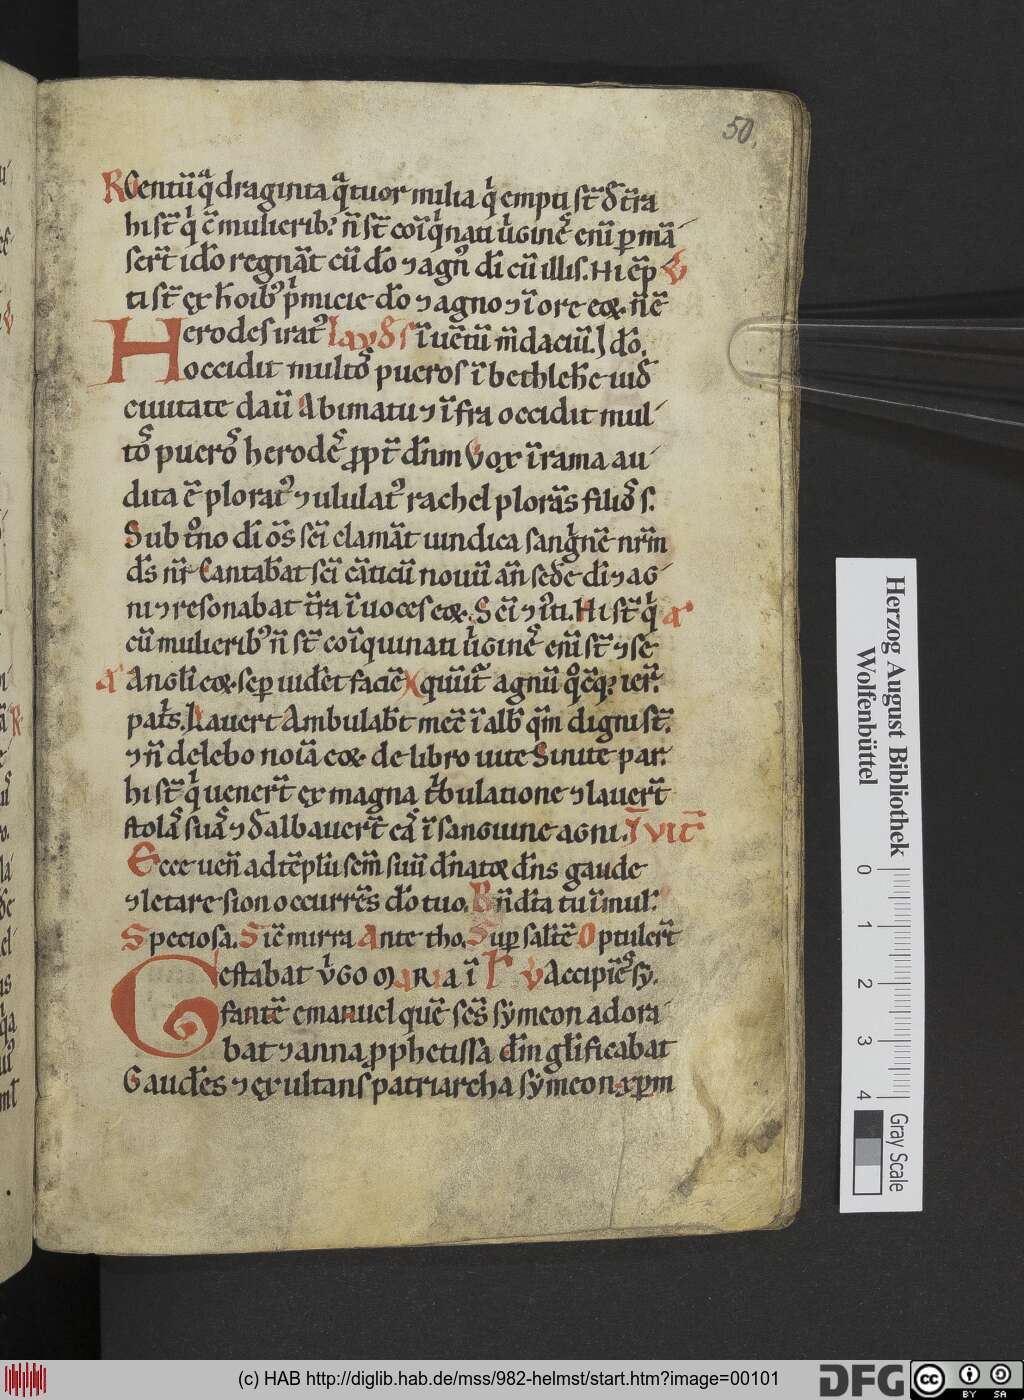 50.
R Centū q̄draginta q̄tuor milia q̇ empti st̄ d̄ tr̄a
hi st̄ q̇ c̄ mulierib; n̄ st̄ coīq̇nati v̇gineˢ eni̅ p̲ mā
sert̄ ido̅ regnāt cū d̄o ⁊ agn̄ dī cū illis. Hi ep̄ V
ti st̄ ex h̄oib; p̄micie d̄o ⁊ agno ⁊ ī ore eoꝝ n̄ ē
Herodes irat᷒ laudˢ ī uētū m̄daciū.] d̄o.
occidit multoˢ pueros ī bethleh̄e iud̄
ciuitate dauī Abimatu ⁊ īfra occidit mul
toˢ pueroˢ herodeˢ ꝓpt̄ dn̄m Vox ī rama au
dita ē plorat᷒ ⁊ ululat᷒ rachel plorās filioˢ s.
Sub tͦno dī oˢ̄ scī clamāt uindica sangn̄ē nr̄m
ds̄ nr̄ Cantab̄at scī cāticū nouū an̄ sedē dī ⁊ ag
ni ⁊ resonabat tr̄a ī uoces eoꝝ. Scī ⁊ iti. Hi st̄ q̇ a
cū mulierib; n̄ st̄ coīquinati v̇gineˢ eni̅ st̄ ⁊ se
a Angl̄i eoꝝ sep̲ uidēt faciē X quiūt agnū q̊cq; ier̄.
pat̄s.] Lauert Ambulab̄t mecē ī alb̄ qm̄ digni st̄.
⁊ n̄ delebo noīa eoꝝ de libro uite Sinite par.
hi st̄ q̇ uenert̄ ex magna ṫbulatione ⁊ lauert̄
stolaˢ suaˢ ⁊ d̄albauert̄ eaˢ ī sanguine agni. I VIT̄
Ecce uen̄ ad tēplū sc̄m suū dn̄atoꝝ dn̄s gaude
⁊ letare sion occurrēs d̄o tuo. R Bn̄dc̄ta tu ī mul.
Speciosa. Sic̄ mirra Ante tho. Sup̲ salūtē Optulert̄
Gestabat v̇GO MARIA ī R V Accipiēˢ sy.
fantē emanuel quē sc̄s symeon adora
bat ⁊ anna ꝓphetissa dn̄m gl̄ificabat
Gaudēs ⁊ exultans patriarcha symeon ⁊ p̲m
Herzog August Bibliothek
Wolfenbüttel
0 1 2 3 4
Gray Scale
(c) HAB http://diglib.hab.de/mss/982-helmst/start.htm?image=00101
DFG
cc
BY SA